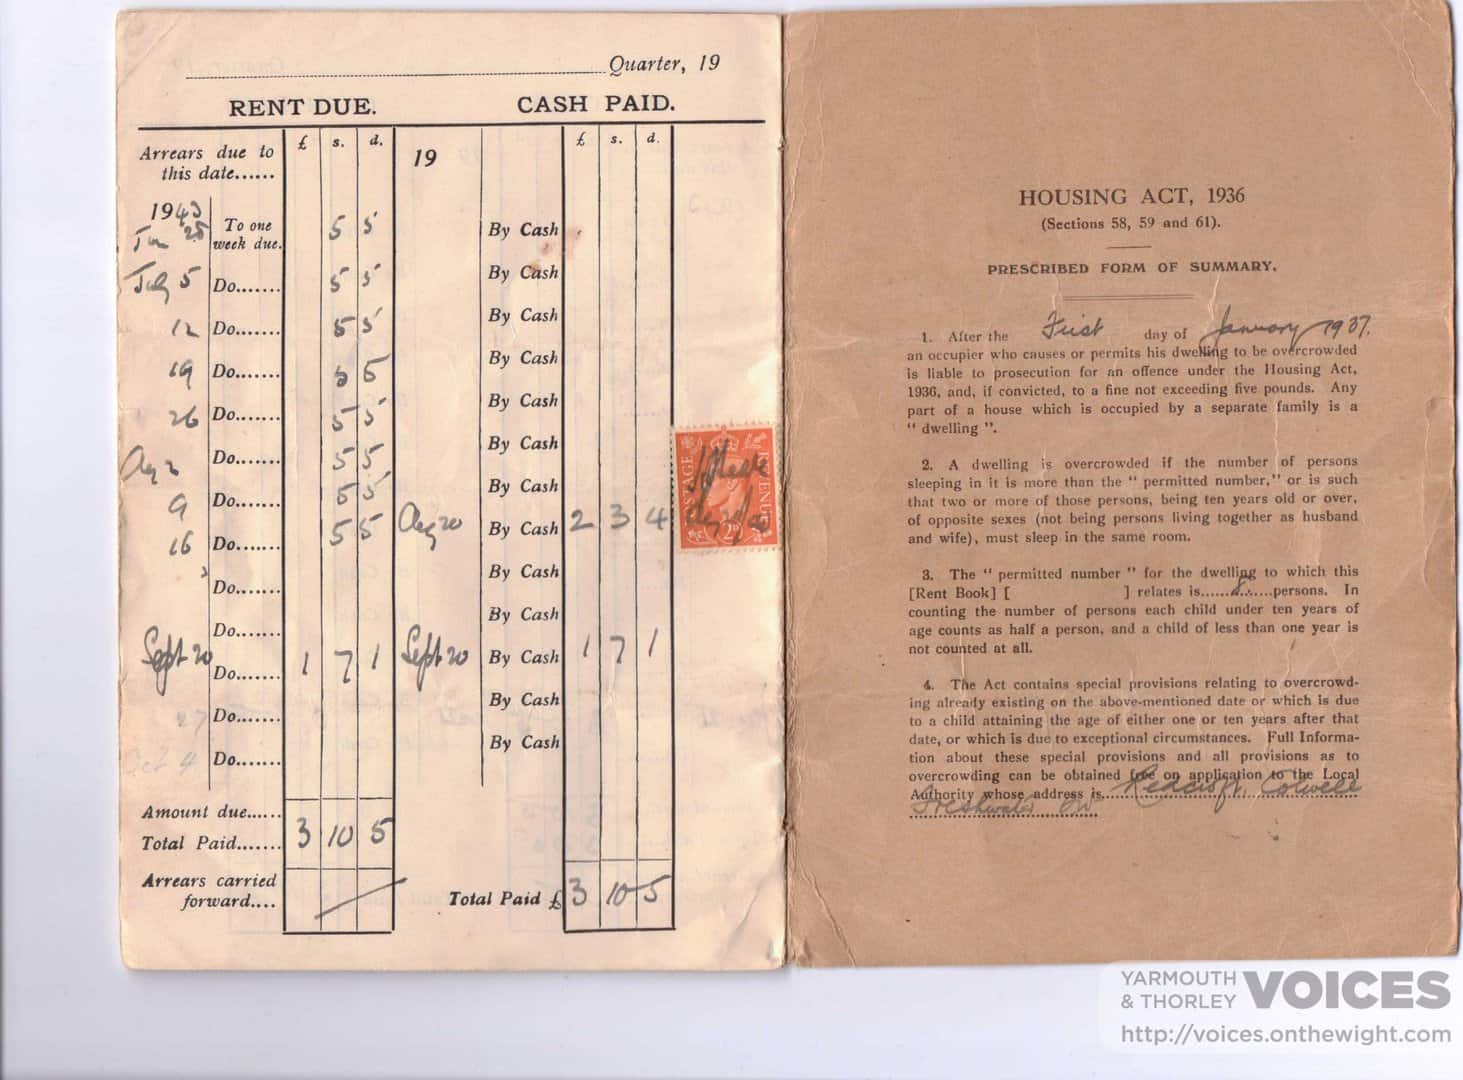 Quarter, 19
RENT DUE. CASH PAID.
£ s. d. 19 £ s. d.
Arrears due to
this date......
1943
25 To one week due. 5 5 By Cash
July 5 Do....... 5 5 By Cash
12 Do....... 5 5 By Cash
19 Do....... 5 5 By Cash
26 Do....... 5 5 By Cash
Aug 2 Do....... 5 5 By Cash
9 Do....... 5 5 By Cash
16 Do....... 5 5 Aug 20 By Cash 2 3 4
Do....... By Cash
Do....... By Cash
Sept 20 Do....... 1 7 1 Sept 20 By Cash 1 7 1
27 Do....... By Cash
Oct 4 Do....... By Cash
Amount due......
Total Paid....... 3 10 5
Arrears carried
forward.... Total Paid £ 3 10 5
POSTAGE REVENUE
2D
HOUSING ACT, 1936
(Sections 58, 59 and 61).
PRESCRIBED FORM OF SUMMARY.
1. After the First day of January 1937.
an occupier who causes or permits his dwelling to be overcrowded
is liable to prosecution for an offence under the Housing Act,
1936, and, if convicted, to a fine not exceeding five pounds. Any
part of a house which is occupied by a separate family is a
“ dwelling ”.
2. A dwelling is overcrowded if the number of persons
sleeping in it is more than the “ permitted number,” or is such
that two or more of those persons, being ten years old or over,
of opposite sexes (not being persons living together as husband
and wife), must sleep in the same room.
3. The “ permitted number ” for the dwelling to which this
[Rent Book] [ ] relates is......8......persons. In
counting the number of persons each child under ten years of
age counts as half a person, and a child of less than one year is
not counted at all.
4. The Act contains special provisions relating to overcrowd-
ing already existing on the above-mentioned date or which is due
to a child attaining the age of either one or ten years after that
date, or which is due to exceptional circumstances. Full Informa-
tion about these special provisions and all provisions as to
overcrowding can be obtained free on application to the Local
Authority whose address is Redcroft, Colwell
Freshwater IW
YARMOUTH & THORLEY VOICES
http://voices.onthewight.com